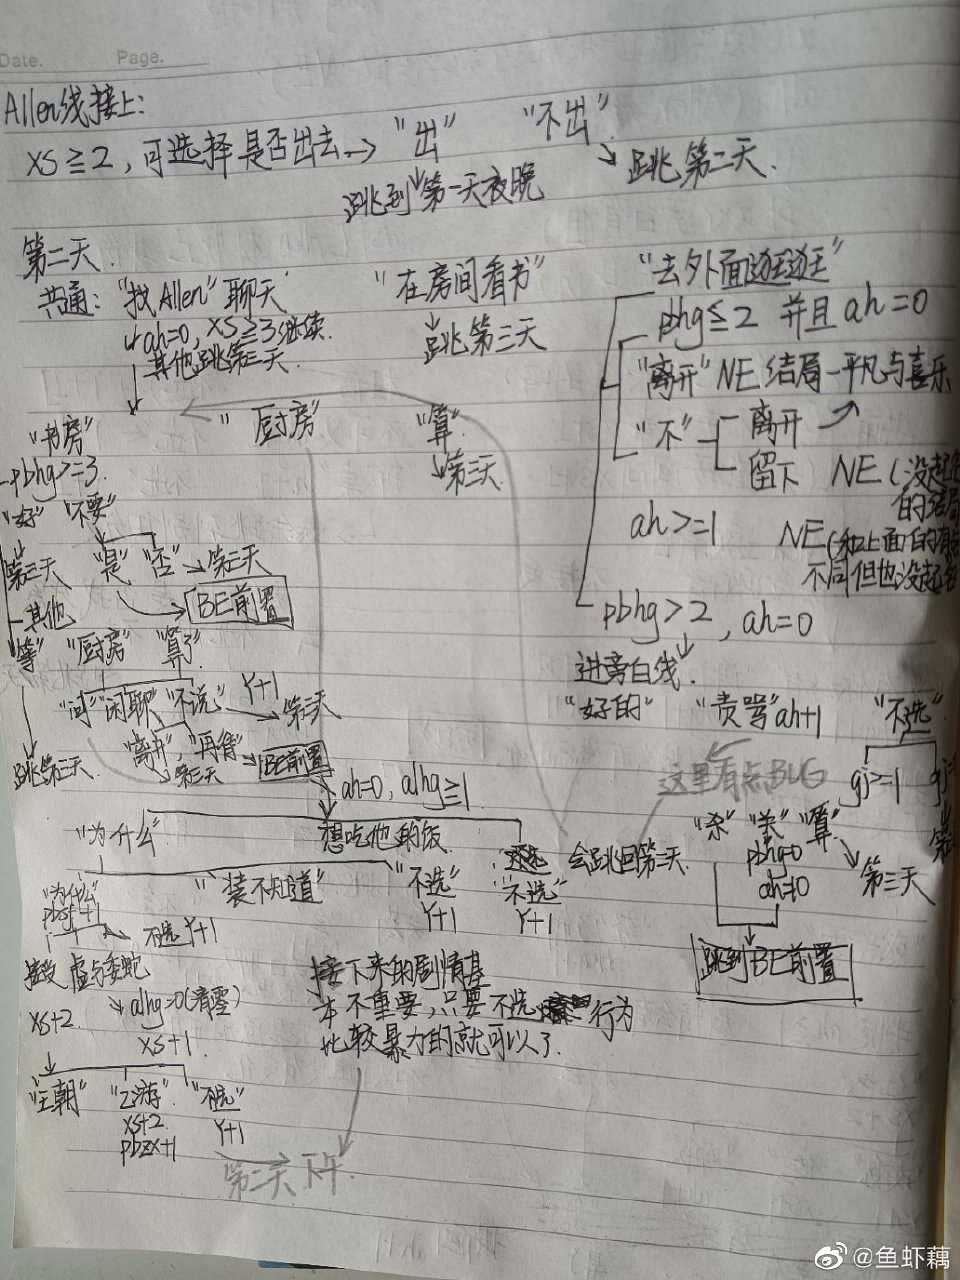 Date. Page.
Allen线接上:
xs≧2,可选择是否出去→ "出" "不出"
跳到第一天夜晚 跳第二天.
第二天.
共通: "找Allen"聊天 "在房间看书" "去外面逛逛"
ah=0, xs≧3继续. 跳第三天
其他跳第三天.
phg≦2 并且 ah=0
"离开" NE结局—平凡与喜乐
"不" 离开
留下 NE(没起
的结局
ah>=1 NE(和上面的
不同但也没起
pbhg>2, ah=0
进旁白线.
"好的" "责骂"ah+1 "不选"
这里有点BUG gj>=1
"杀" "算"
pbhg=0
第三天
跳到BE前置
"书房" "厨房" "算"
第三天
pbhg>=3
"好" "不要"
第三天 "是" "否" 第三天
BE前置
其他
"等" "厨房" "算了"
"问" "闲聊" "不说" Y+1 第三天
跳第三天 "离开" 第三天 BE前置
ah=0, alhg≧1
"为什么" 想吃他的饭
"装不知道" "不选" "不选" 会跳回第二天
Y+1 Y+1
"为什么"
不选 Y+1
虚与委蛇
xs+2 alhg=0(清零)
xs+1
接下来的剧情基
本不重要,只要不选 行为
比较暴力的就可以了.
"王朝" "乙游" "不选"
xs+2 Y+1
pbzx+1
第二天下午
@鱼虾藕